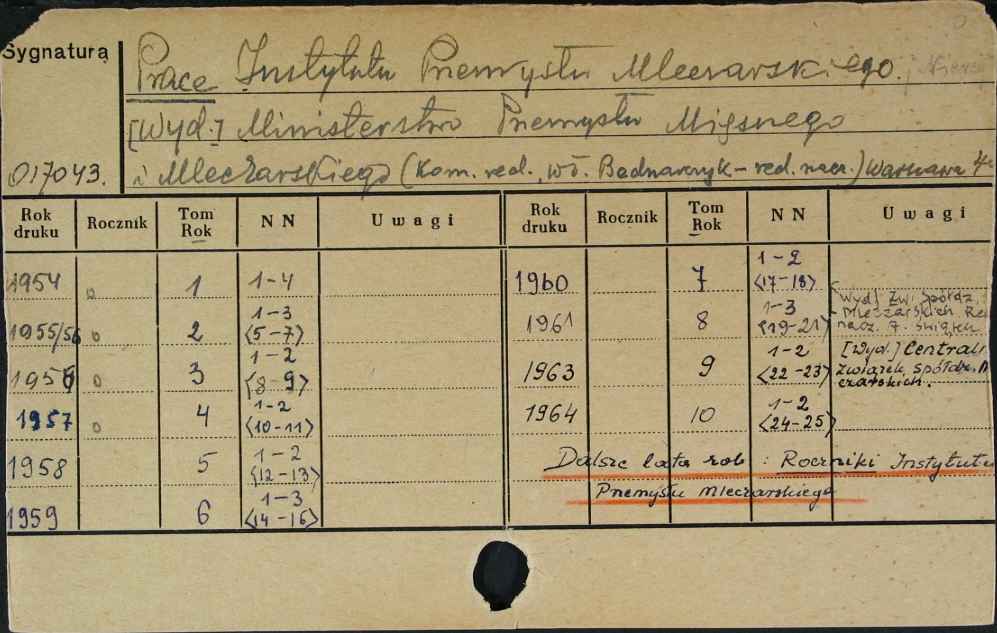 Sygnatura
Prace Instytutu Przemysłu Mleczarskiego.
[Wyd.] Ministerstwo Przemysłu Mięsnego
017043. i Mleczarskiego (Kom. red., wł. Bednarczyk – red. nacz.) Warszawa 4°
Rok druku Rocznik Tom Rok NN Uwagi Rok druku Rocznik Tom Rok NN Uwagi
1954 o 1 1–4 1960 7 1–2 <17–18>
1955/56 o 2 1–3 <5–7> 1961 8 1–3 <19–21> Wyd. Zw. Spółdz. Mleczarskich Re nacz. F. Świątek
1956 o 3 1–2 <8–9> 1963 9 1–2 <22–23> [Wyd.] Centraln Związek spółdz. czarskich.
1957 o 4 1–2 <10–11> 1964 10 1–2 <24–25>
1958 5 1–2 <12–13> Dalsze lata zob : Roczniki Instytutu
1959 6 1–3 <14–16> Przemysłu Mleczarskiego